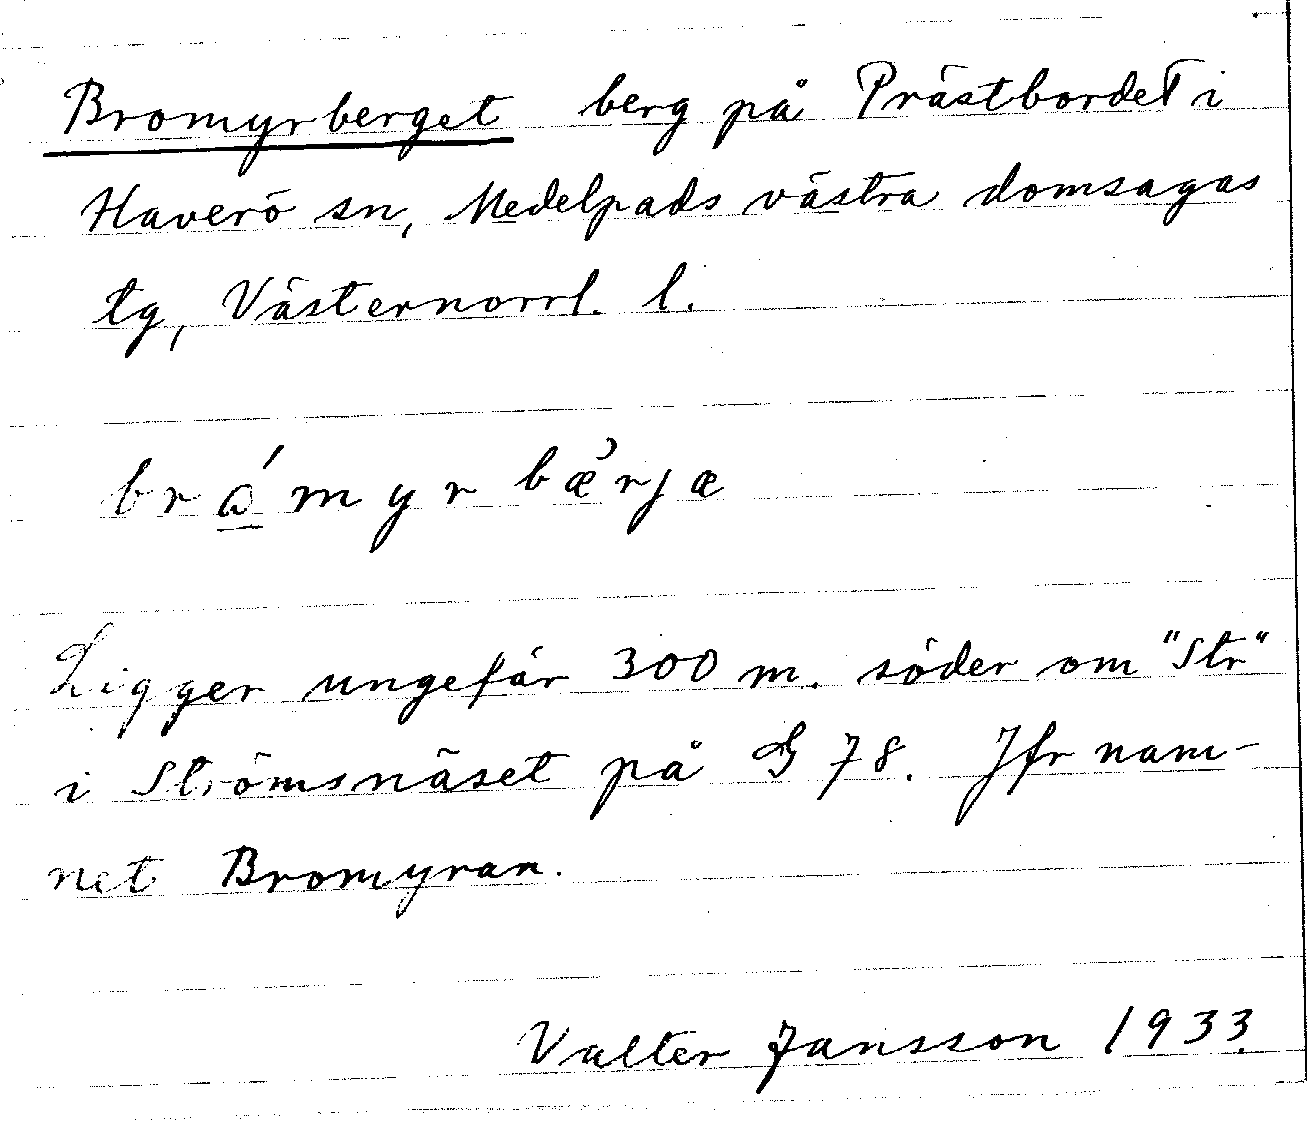 Bromyrberget berg på Prästbordet i
Haverö sn, Medelpads västra domsagas
tg, Västernorrl. l.
brǻmyrbæ̀rjæ
Ligger ungefär 300 m. söder om "Str"
i Strömsnäset på G 78. Jfr nam-
net Bromyran.
Valter Jansson 1933.